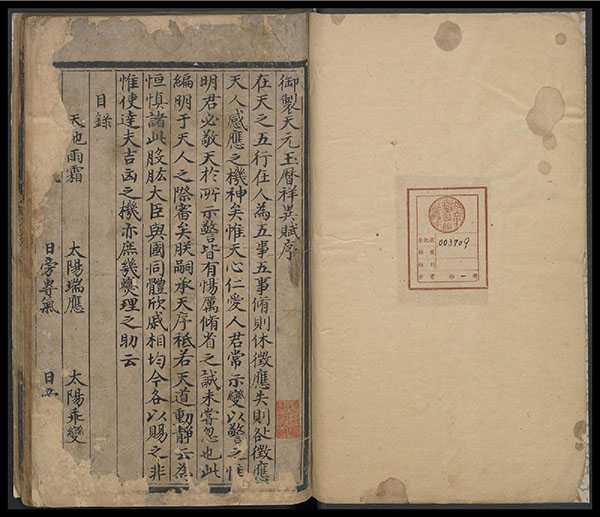 003909
御製天元玉曆祥異賦序
在天之五行在人為五事五事脩則休徵應失則咎徵應
天人感應之機神矣惟天心仁愛人君常示變以警之惟
明君必敬天於所示警皆有惕厲脩省之誠未嘗忽也此
編明于天人之際審矣朕嗣承天序祗若天道動靜云為
恒慎諸此股肱大臣與國同體欣戚相均今各以賜之非
惟使達夫吉凶之機亦庶幾燮理之助云
目錄
天地雨霜 太陽瑞應 太陽乖變
日旁 氣 日